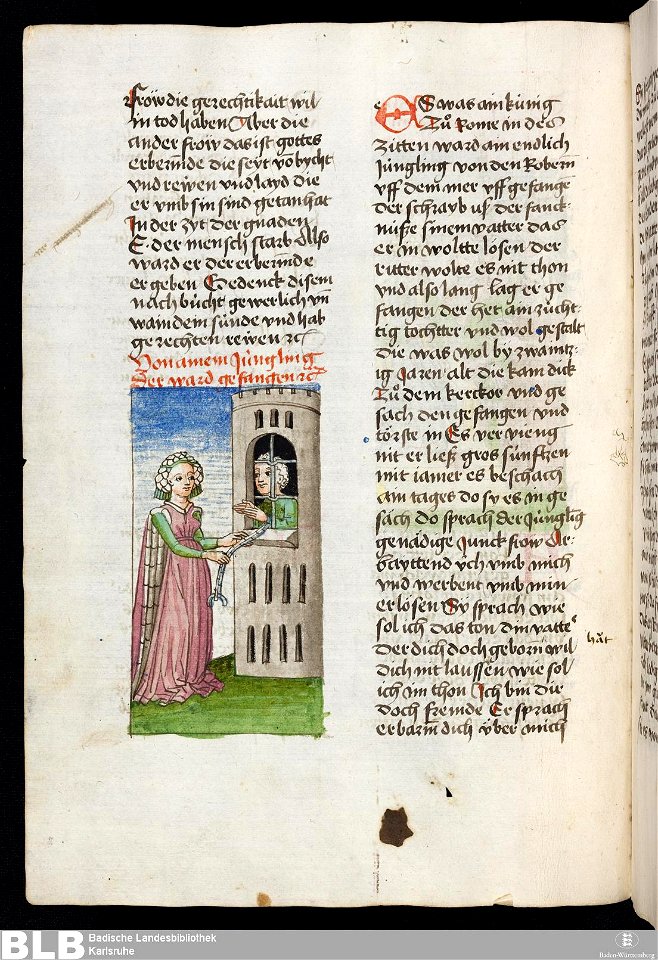 frow die gerechtikait wil
in tod haben Aber die
ander frow das ist gottes
erbermde die seyt vō bycht
vnd rewen vnd layd die
er vmb sin sind getan hat
In der zyt der gnaden
E der mensch starb Also
ward er der erbermde
er geben Gedenck disem
nach bücht gewerlich vn
wain dem sünde vnd hab
gerechten rewen ꝛc
Von ainem Jüngling
der ward gefangen ꝛc
ES was ain küng
Zů Rome in des
zitten ward ain endlich
Jüngling von den Robern
vff dem mer vff gefange
der schrayb uß der fanck
nusse sinem vatter das
er in woltte lösen der
ritter wolte es nit thon
vnd also lang lag er ge
fangen der het ain zücht
tig tochtter vnd wol gestalt
die was wol by zwaintz
ig Jaren alt die kam dick
Zů dem kerckor vnd ge
sach den gefangen vnd
törste in Es ver vieng
nit er ließ gros sünftzen
mit iamer es beschach
ain tages do sy es in ge
sach do sprach der Jüngling
genädige Junck frow Ar
bayttend ỽch vmb mich
vnd werbent vmb min
erlösen Sy sprach wie
sol ich das ton din vatter
der dich doch geborn wil
dich nit laussen wie sol
hăt
ich im thon Ich bin die
doch fremde Er sprach
erbarm dich über mich
BLB
Badische Landesbibliothek
Karlsruhe
Baden-Württemberg